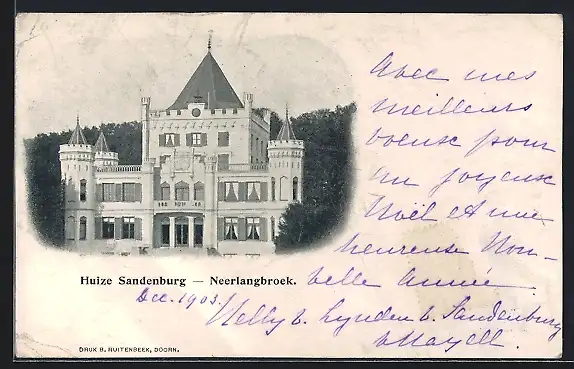 Avec mes
meilleurs
voeux pour
un joyeux
Noël et une
heureuse Nou-
velle Année.
Huize Sandenburg — Neerlangbroek.
Dec. 1903.
Nelly v. Lynden v. Sandenburg
DRUK B. RUITENBEEK, DOORN.